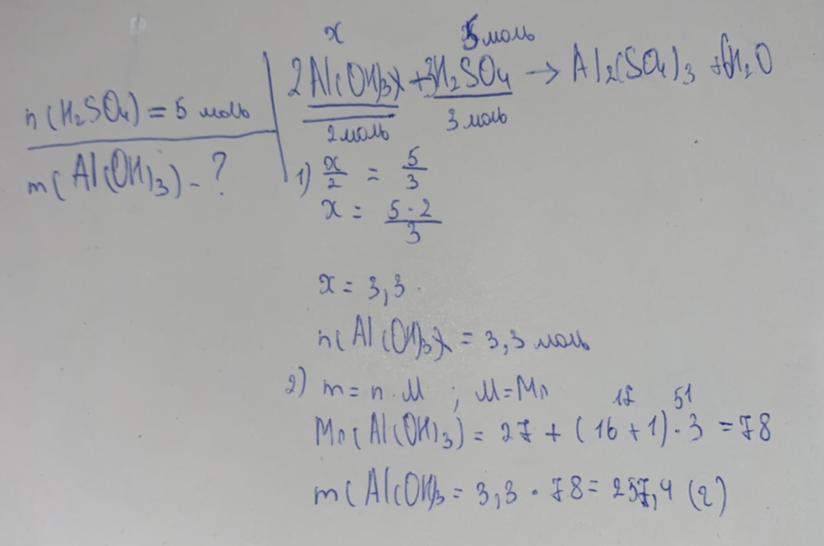 n(H₂SO₄) = 5 моль
m(Al(OH)₃) - ?
x 5 моль
2Al(OH)₃ + 3H₂SO₄ → Al₂(SO₄)₃ + 6H₂O
2 моль 3 моль
1) x/2 = 5/3
x = 5·2/3
x = 3,3
n(Al(OH)₃) = 3,3 моль
2) m = n·M ; M = Mr
17 51
Mr(Al(OH)₃) = 27 + (16 + 1)·3 = 78
m(Al(OH)₃ = 3,3 · 78 = 257,4 (г)